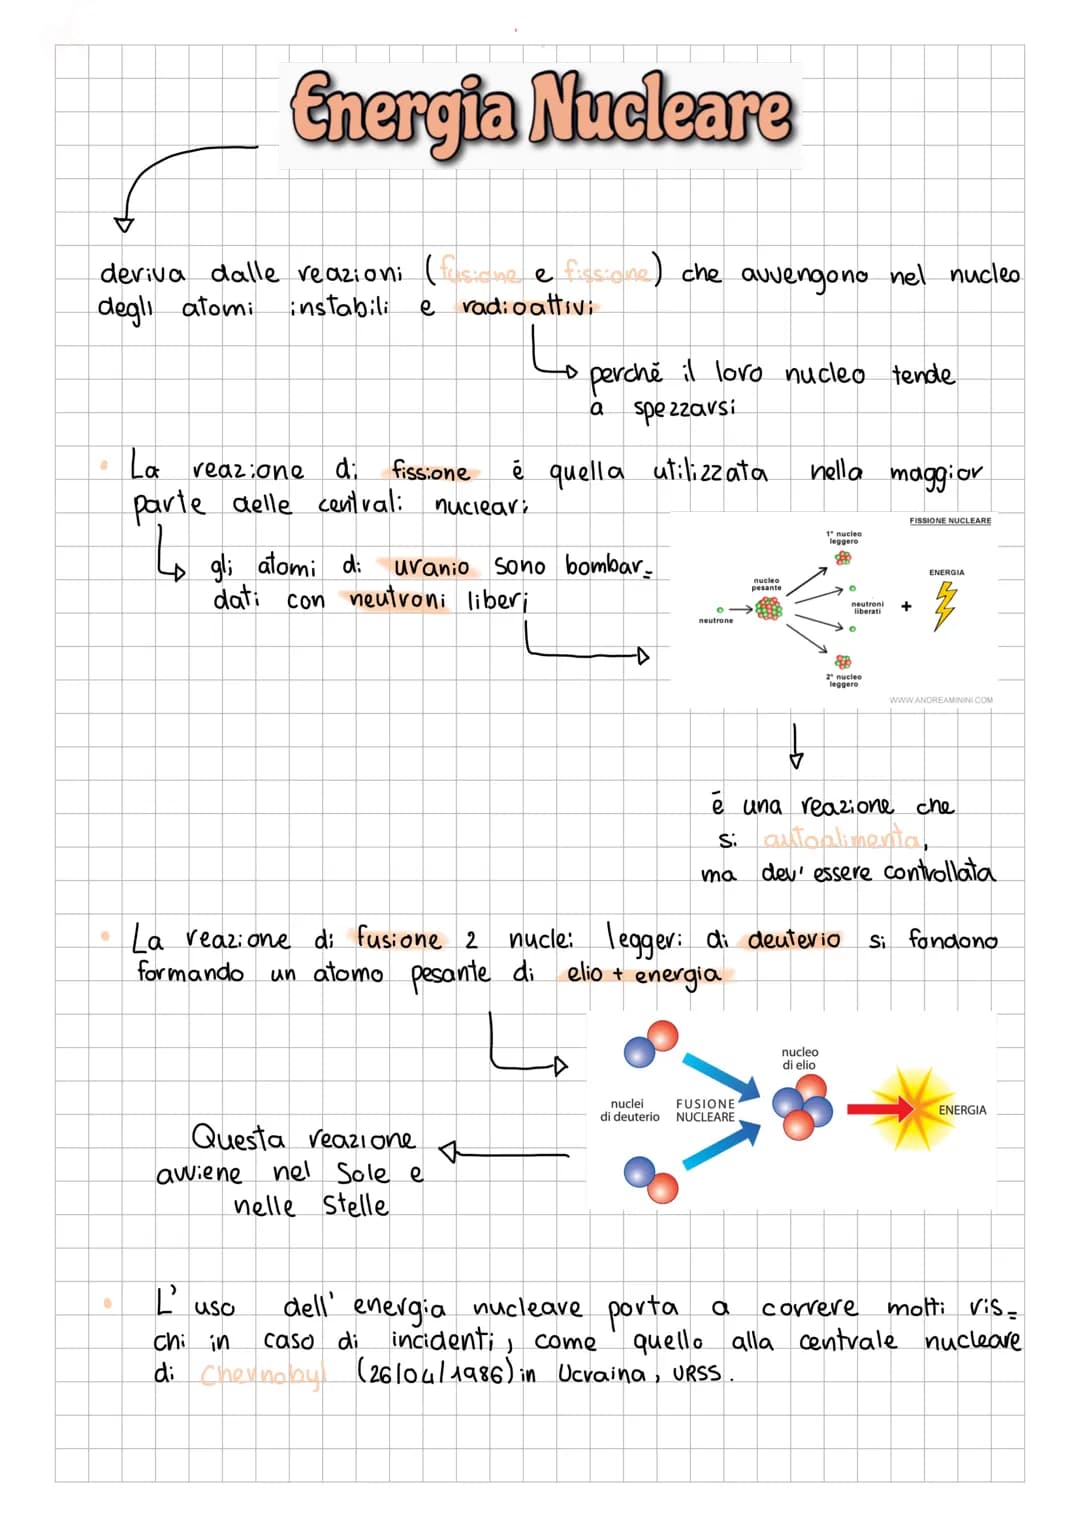 Energia Nucleare
deriva dalle reazioni (fusione e fissione) che avvengono nel nucleo
degli atomi instabili e radioattivi
perché il loro nucleo tende
a spezzarsi
• La reazione di fissione é quella utilizzata nella maggior
parte delle centrali nucleari
gli atomi di uranio sono bombar-
dati con neutroni liberi
FISSIONE NUCLEARE
1° nucleo
leggero
ENERGIA
nucleo
pesante
neutroni
liberati
+
neutrone
2° nucleo
leggero
WWW.ANDREAMININI.COM
é una reazione che
si autoalimenta,
ma dev' essere controllata
• La reazione di fusione 2 nuclei leggeri di deuterio si fondono
formando un atomo pesante di elio + energia
nucleo
di elio
nuclei
di deuterio
FUSIONE
NUCLEARE
ENERGIA
Questa reazione
avviene nel Sole e
nelle Stelle
• L' uso dell' energia nucleare porta a correre molti ris-
chi in caso di incidenti, come quello alla centrale nucleare
di Chernobyl (26/04/1986) in Ucraina, URSS.